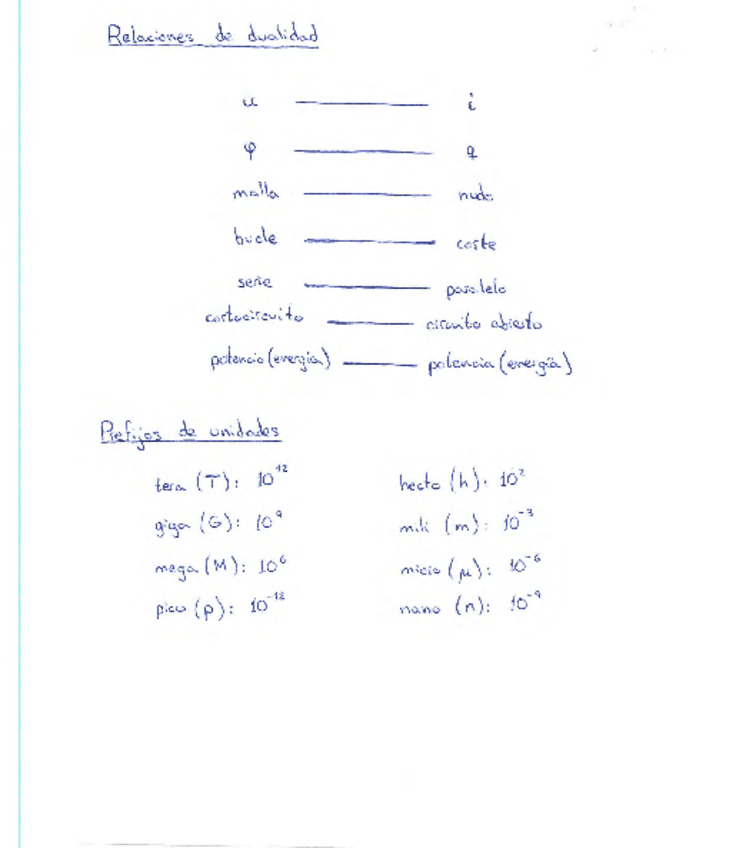 Relaciones de dualidad
u ——— i
φ ——— q
malla ——— nudo
bucle ——— corte
serie ——— paralelo
cortocircuito ——— circuito abierto
potencia (energía) ——— potencia (energía)
Prefijos de unidades
tera (T): 10¹² hecto (h): 10²
giga (G): 10⁹ mili (m): 10⁻³
mega (M): 10⁶ micro (μ): 10⁻⁶
pico (p): 10⁻¹² nano (n): 10⁻⁹